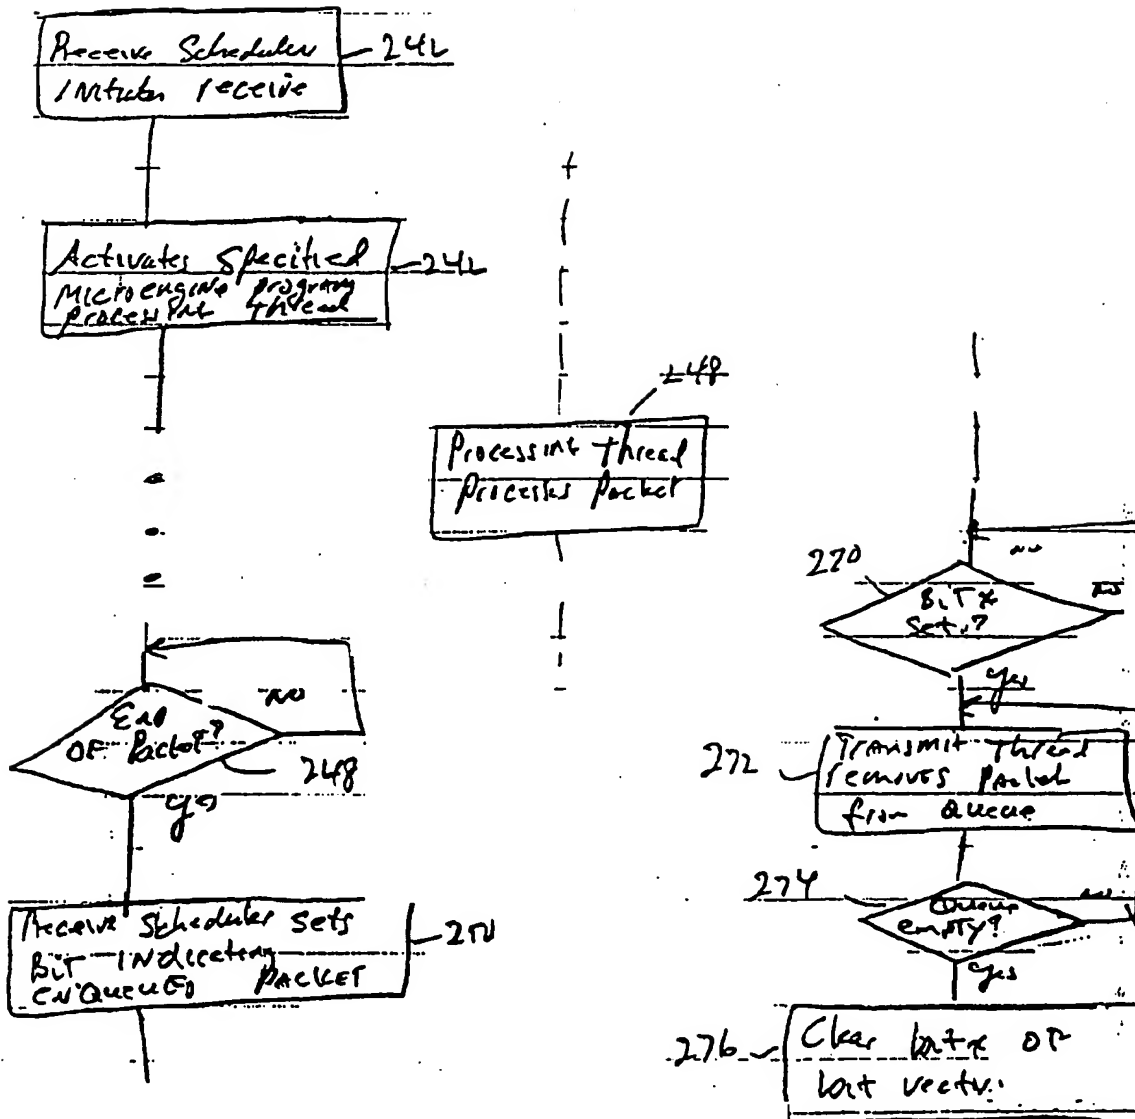 Receive Scheduler
Initiates receive
242
Activates Specified
Microengine program
processing thread
242
248
Processing thread
Processes Packet
End
OF Packet?
NO
248
yes
Receive Scheduler Sets
BIT INdicating
ENQUEUED PACKET
250
270
BIT x
Set?
NO
NO
yes
272
TRANSMIT Thread
removes Packet
from Queue
274
Queue
empty?
NO
yes
276
Clear bit x OF
bit vector